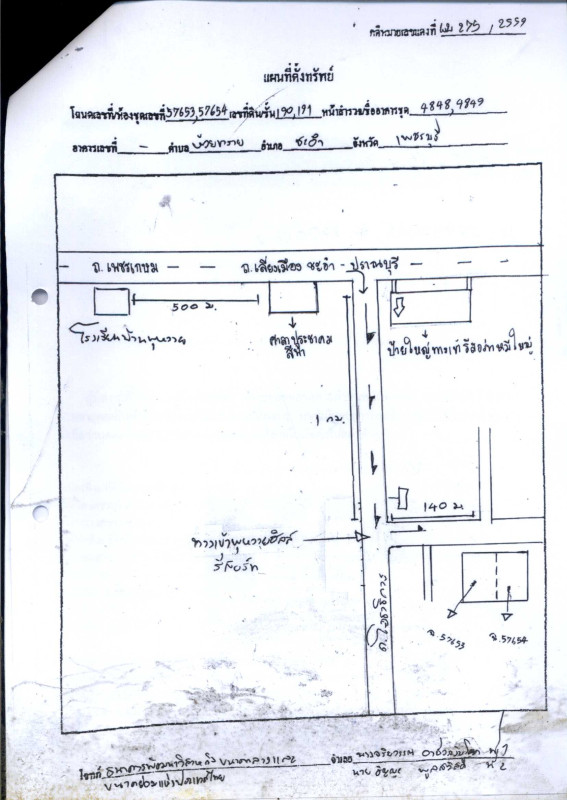 คดีหมายเลขแดงที่ ผบ 275 / 2559
แผนที่ตั้งทรัพย์
โฉนดเลขที่/ห้องชุดเลขที่ 57653,57654 เลขที่ดิน/ชั้น 190,191 หน้าสำรวจ/ชื่ออาคารชุด 4848,4849
อาคารเลขที่ - ตำบล ห้วยทราย อำเภอ ชะอำ จังหวัด เพชรบุรี
ถ. เพชรเกษม ถ. เลี่ยงเมือง ชะอำ - ปราณบุรี
500 ม.
โรงเรียนบ้านพุหวาย
ศาลาประชาคม
สีฟ้า
ป้ายใหญ่
1 กม.
140 ม.
ทางเข้าพุหวายฮิลล์
รีสอร์ท
ฉ. 57653
ฉ. 57654
โจทก์ ธนาคารพัฒนาวิสาหกิจขนาดกลางและ
ขนาดย่อมแห่งประเทศไทย
จำเลย
นาย